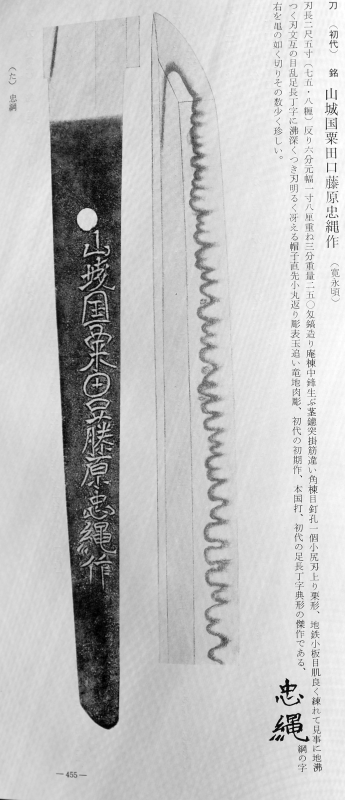 刀 （初代） 銘 山城国粟田口藤原忠縄作 （寛永頃）
刃長二尺五寸（七五・八糎）反り六分元幅一寸八厘重ね三分重量二五〇匁鎬造り庵棟中鋒生ぶ茎鑢突掛筋違い角棟目釘孔一個小尻刃上り栗形、地鉄小板目肌良く錬れて見事に地沸
つく刃文互の目乱足長丁字に沸深くつき刃明るく冴える帽子直先小丸返り彫表玉追い竜地肉彫、初代の初期作、本国打、初代の足長丁字典形の傑作である、忠縄 綱の字
右を黽の如く切りその数少く珍しい。
山城国粟田口藤原忠縄作
（七）忠綱
—455—